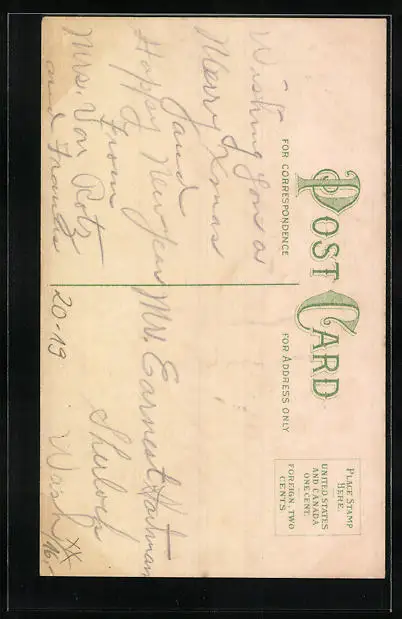 POST CARD
FOR CORRESPONDENCE
FOR ADDRESS ONLY
PLACE STAMP
HERE.
UNITED STATES
AND CANADA
ONE CENT.
FOREIGN, TWO
CENTS
Wishing you a
Merry Xmas
and
Happy New year
From
Mrs. Von Rotz
and Francis
Mr. Earnest Hartman
Sherlock
Wash
20-19
XX
16,-